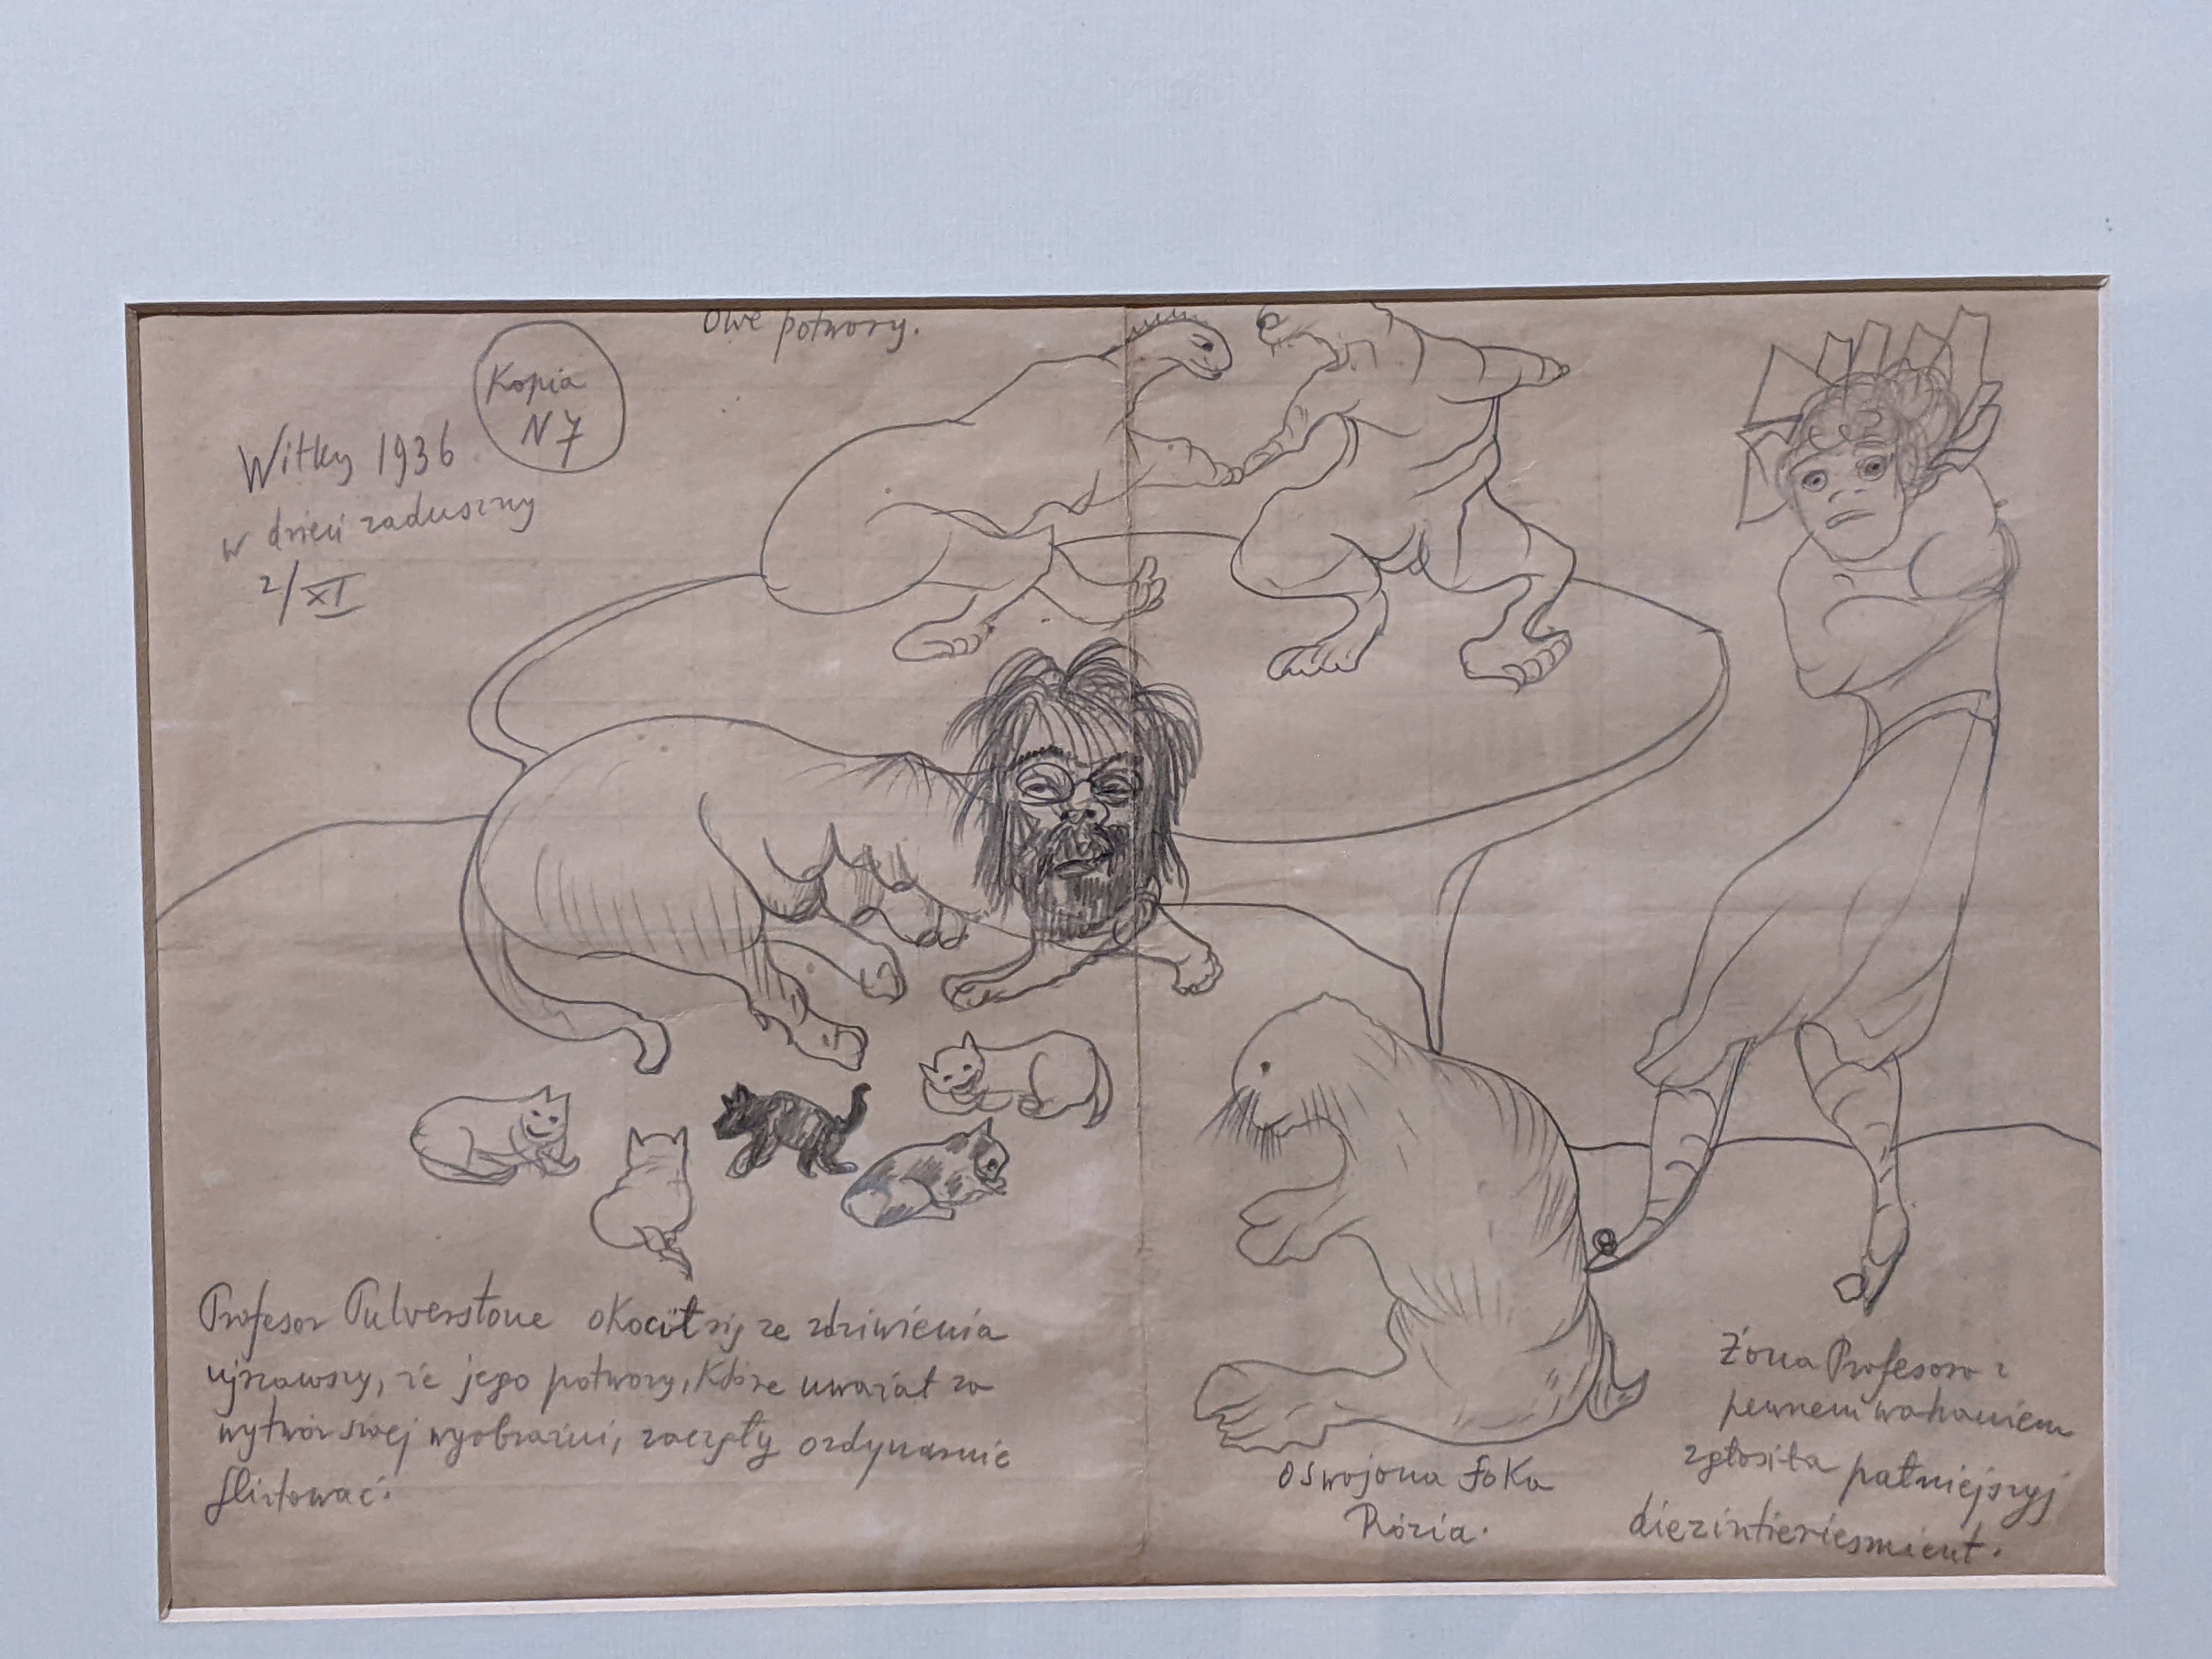 Owe potwory.
Kopia
N 7
Witkacy 1936
w dzień zaduszny
2/XI
Profesor Pulverstone okocił się ze zdziwienia
ujrzawszy, że jego potwory, które uważał za
wytwór swej wyobraźni, zaczęły ordynarnie
flirtować.
Oswojona foka
Rózia.
Żona Profesora z
pewnem wahaniem
zgłosiła pałniejszyj
diezintieriesmient.